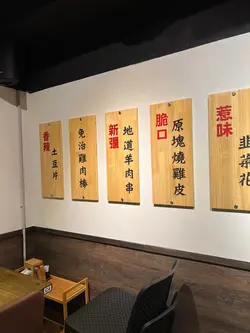 香辣
土豆片
免治雞肉棒
新疆
地道羊肉串
脆口
原塊燒雞皮
惹味
韭菜花